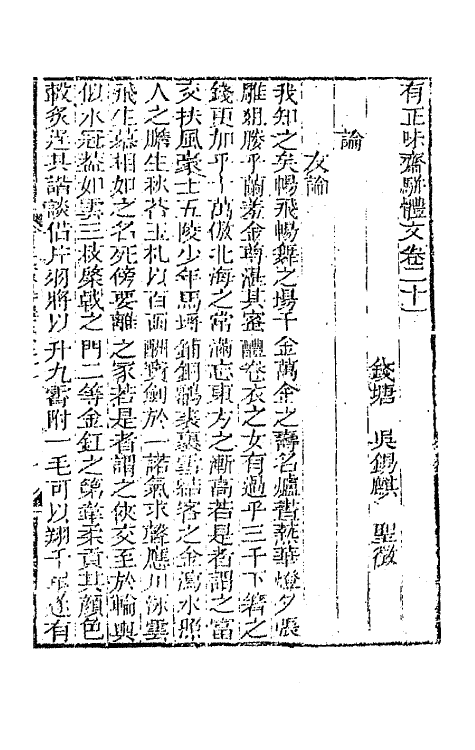 有正味齋駢體文卷二十一
錢塘 吳錫麒 聖徵
論
友論
我知之矣暢飛暢舞之場千金萬金之壽名爐晝爇華燈夕張
雕俎勝乎蘭羞金尊湛其蜜醴卷衣之女有過乎三千下箸之
錢更加乎十萬傲北海之常滿忘東方之漸高若是者謂之富
交扶風豪士五陵少年馬埒鋪銅鷫裘裹雪結客之金瀉水照
人之膽生秋荅玉札以百函酬寶劍於一諾氣求聲應川泳雲
飛生慕相如之名死傍要離之家若是者謂之俠交至於輪輿
似水冠蓋如雲三枝棨戟之門二等金釭之第葦柔貢其顏色
穀豢逞其諧談借片羽將以升九霄附一毛可以翔千里遂有